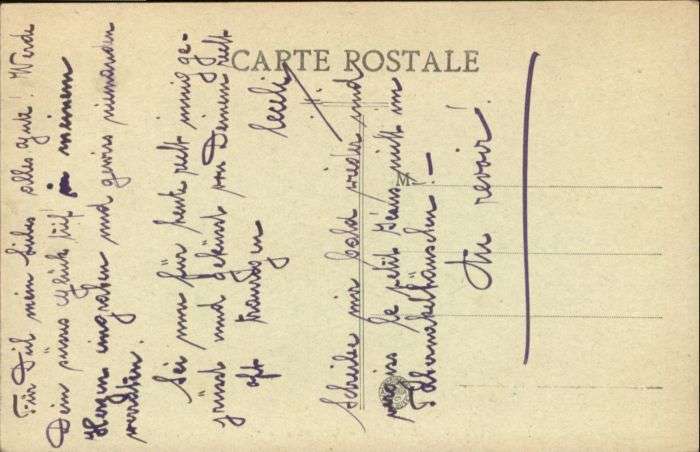 CARTE POSTALE
M
Für Dich mein liebes alles gute! Werde
Dein süsses Glück tief in meinem
Herzen eingraben und gewiss niemanden
Sei nun für heute recht innig ge-
grüsst und geküsst von Deinem recht
oft
Cecili
Schreibe mir bald wieder und
le petit nicht im
Au revoir!